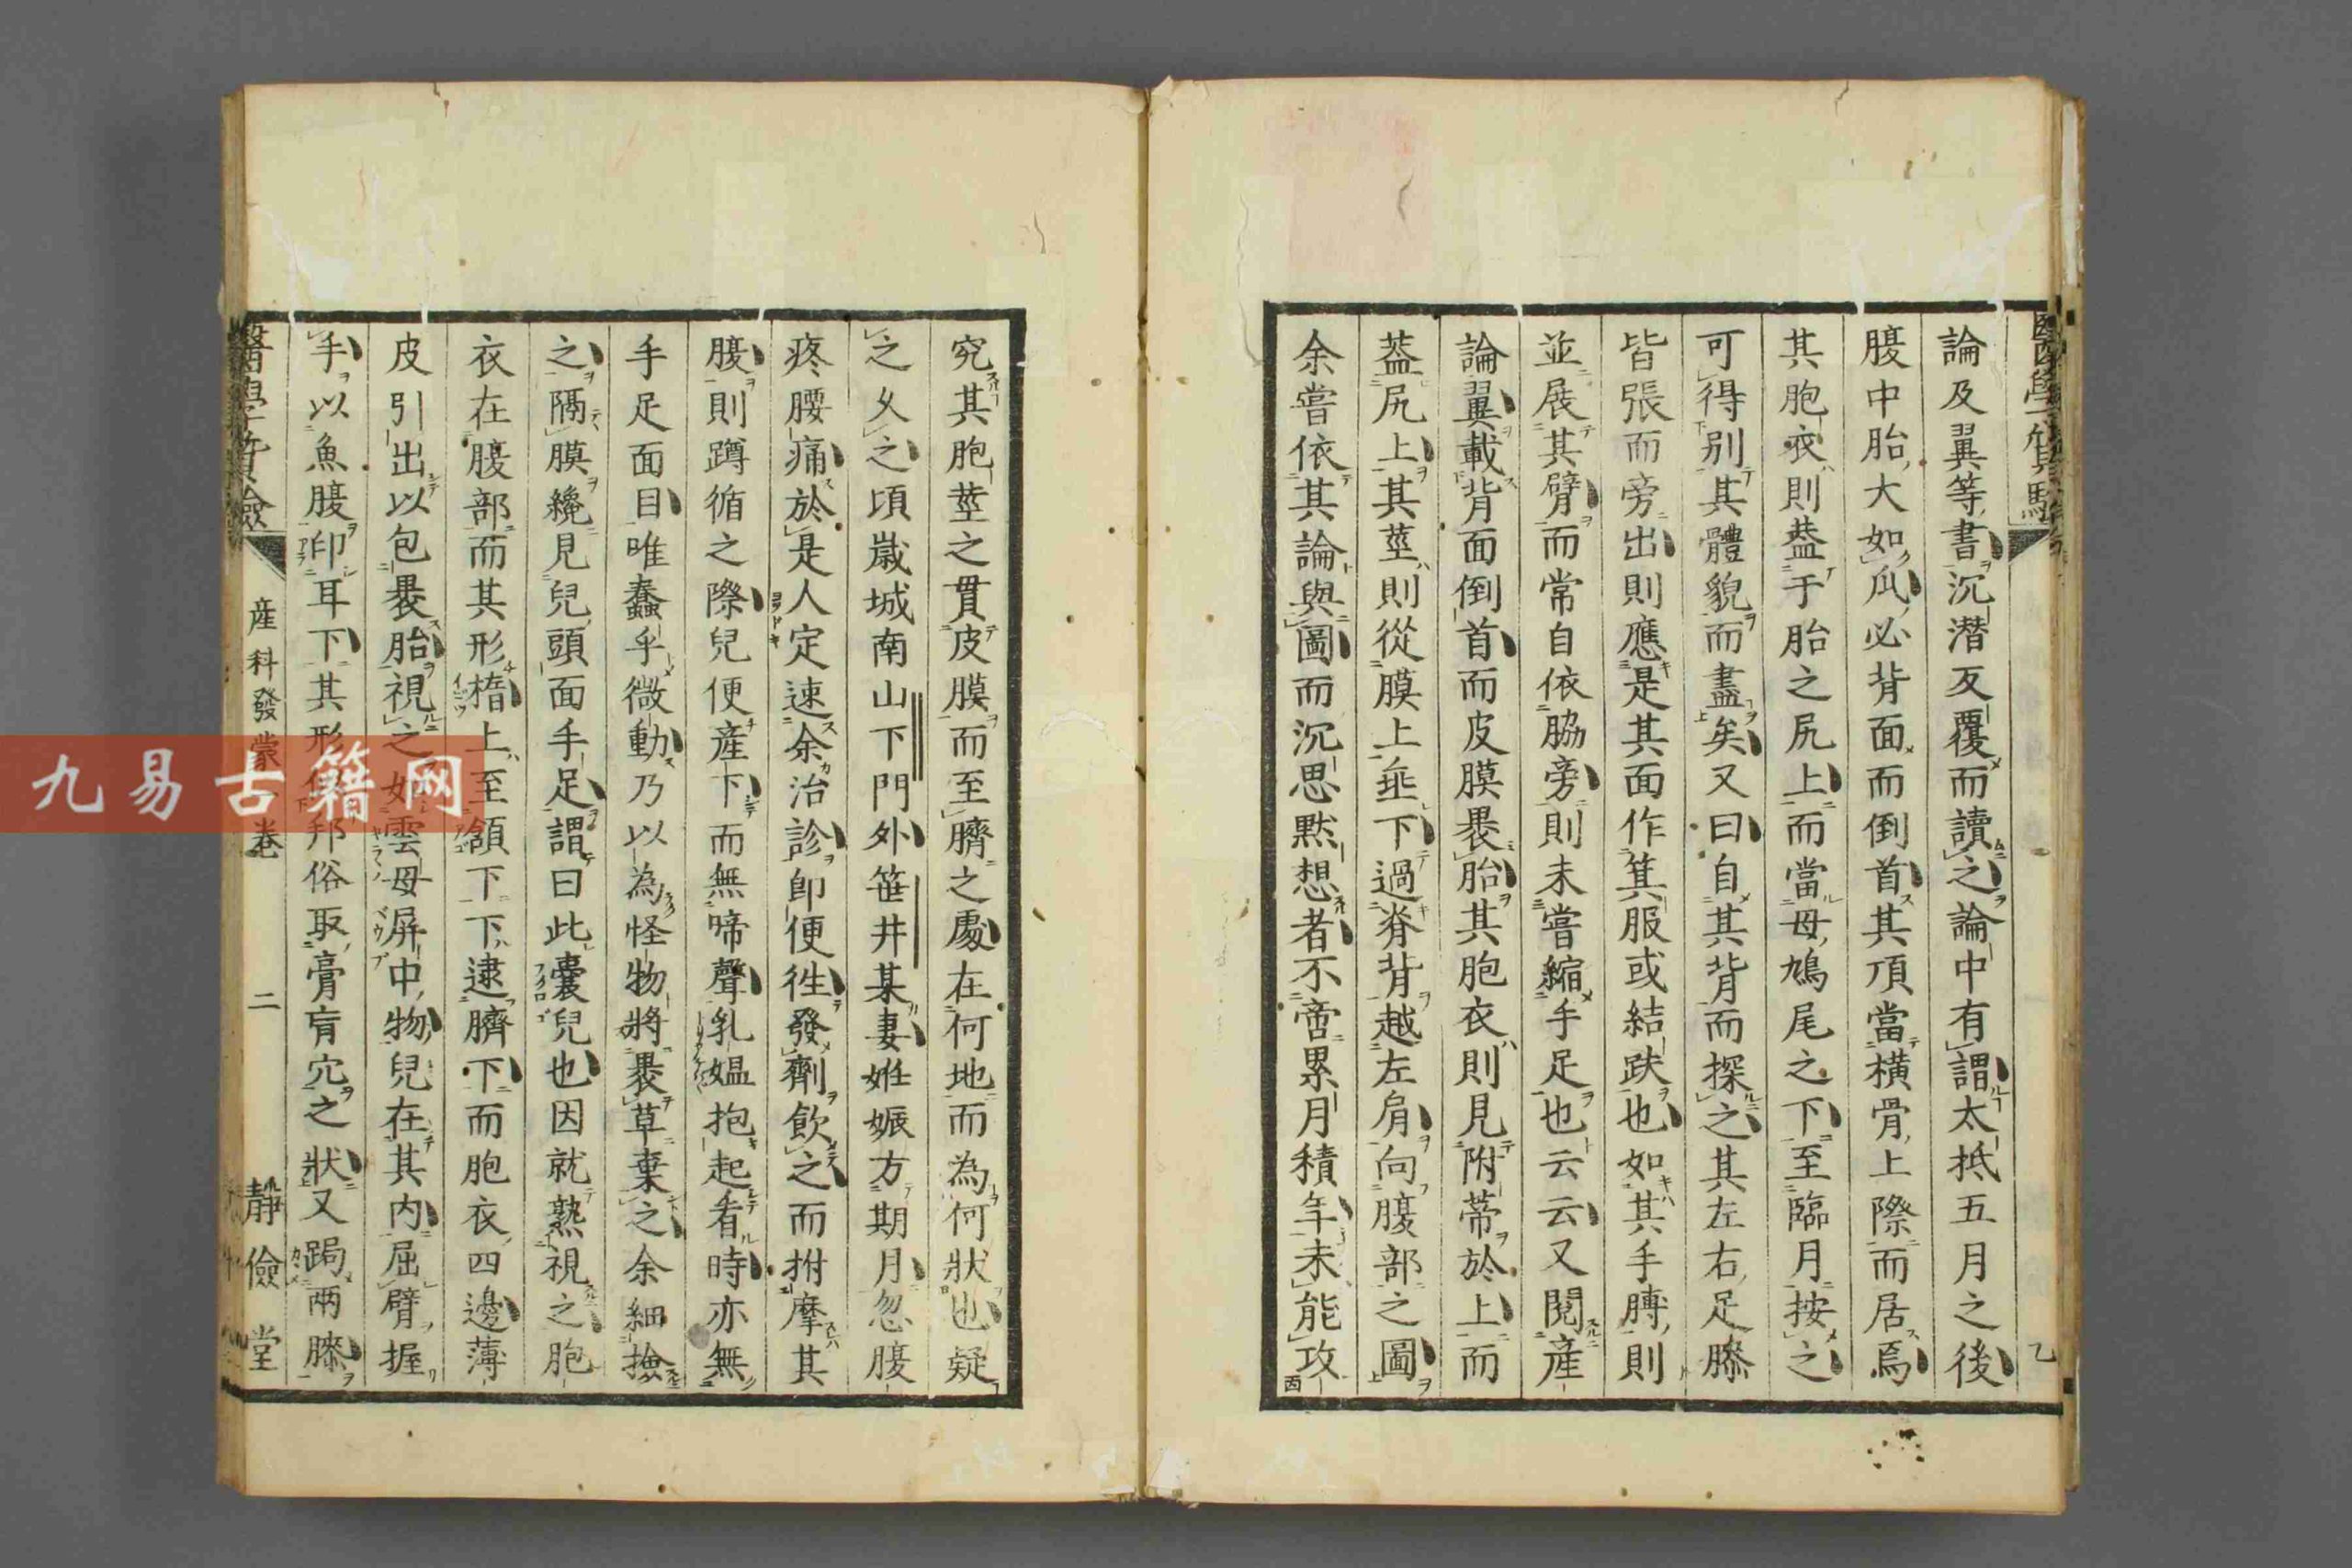 論及翼等書沉潜反覆而讀之論中有謂太抵五月之後
腹中胎大如瓜必背面而倒首其頂當橫骨上際而居焉
其胞衣則葢于胎之尻上而當母鳩尾之下至臨月按之
可得別其體貌而盡矣又曰自其背而探之其左右足膝
皆張而旁出則應是其面作箕服或結趺也如其手膊則
並展其臂而常自依脇旁則未嘗縮手足也云云又閱產
論翼載背面倒首而皮膜褁胎其胞衣則見附蒂於上而
葢尻上其莖則從膜上垂下過脊背越左肩向腹部之圖
余嘗依其論與圖而沉思默想者不啻累月積年未能攻
究其胞莖之貫皮膜而至臍之處在何地而為何狀也疑
之久之頃歲城南山下門外笹井某妻姙娠方期月忽腹
疼腰痛於是人定速余治診即便徃發劑飲之而拊摩其
腹則蹲循之際兒便產下而無啼聲乳媼抱起看時亦無
手足面目唯蠢乎微動乃以為怪物將褁草棄之余細撿
之隔膜纔見兒頭面手足謂曰此囊兒也因就熟視之胞
衣在腹部而其形楕上至頷下下逮臍下而胞衣四邊薄
皮引出以包褁胎視之如雲母屏中物兒在其内屈臂握
手以魚腹印耳下其形邦俗取膏肓穴之狀又跼兩膝
產科發蒙卷 二 靜儉堂
九易古籍网